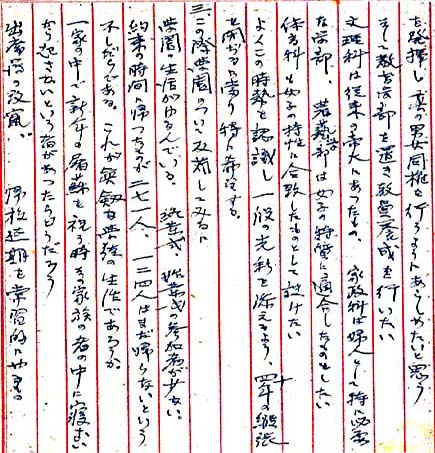 を発揮し真の男女同権を行うようにあらしめたいと思う
そして教育学部を置き教員養成を行いたい
文理科は従来の帝大にあつたもの、家政科は婦人として特に必要
な学部、農藝部は女子の特質に適合したものとしたい
体育科も女子の特性に合致したものとして設けたい
よくこの時勢を認識し一段の光彩を添えるよう、四十年の緊張
を開かるに当り特に希望する。
三 この際学園のついて反省してみるに
学園の生活がゆるんでいる。始業式、始業式の参加者が少ない。
約束の時間に帰つたものが二七一人、一二四人はまだ帰らないという
不しだらである。これが真剣な学徒の生活であろうか
一家の中で新年の屠蘇を祝う時その家族の者の中に寝むい
から起きないという者があつたらどうだろう
出席簿の改竄、帰校延期を常習的にやるの